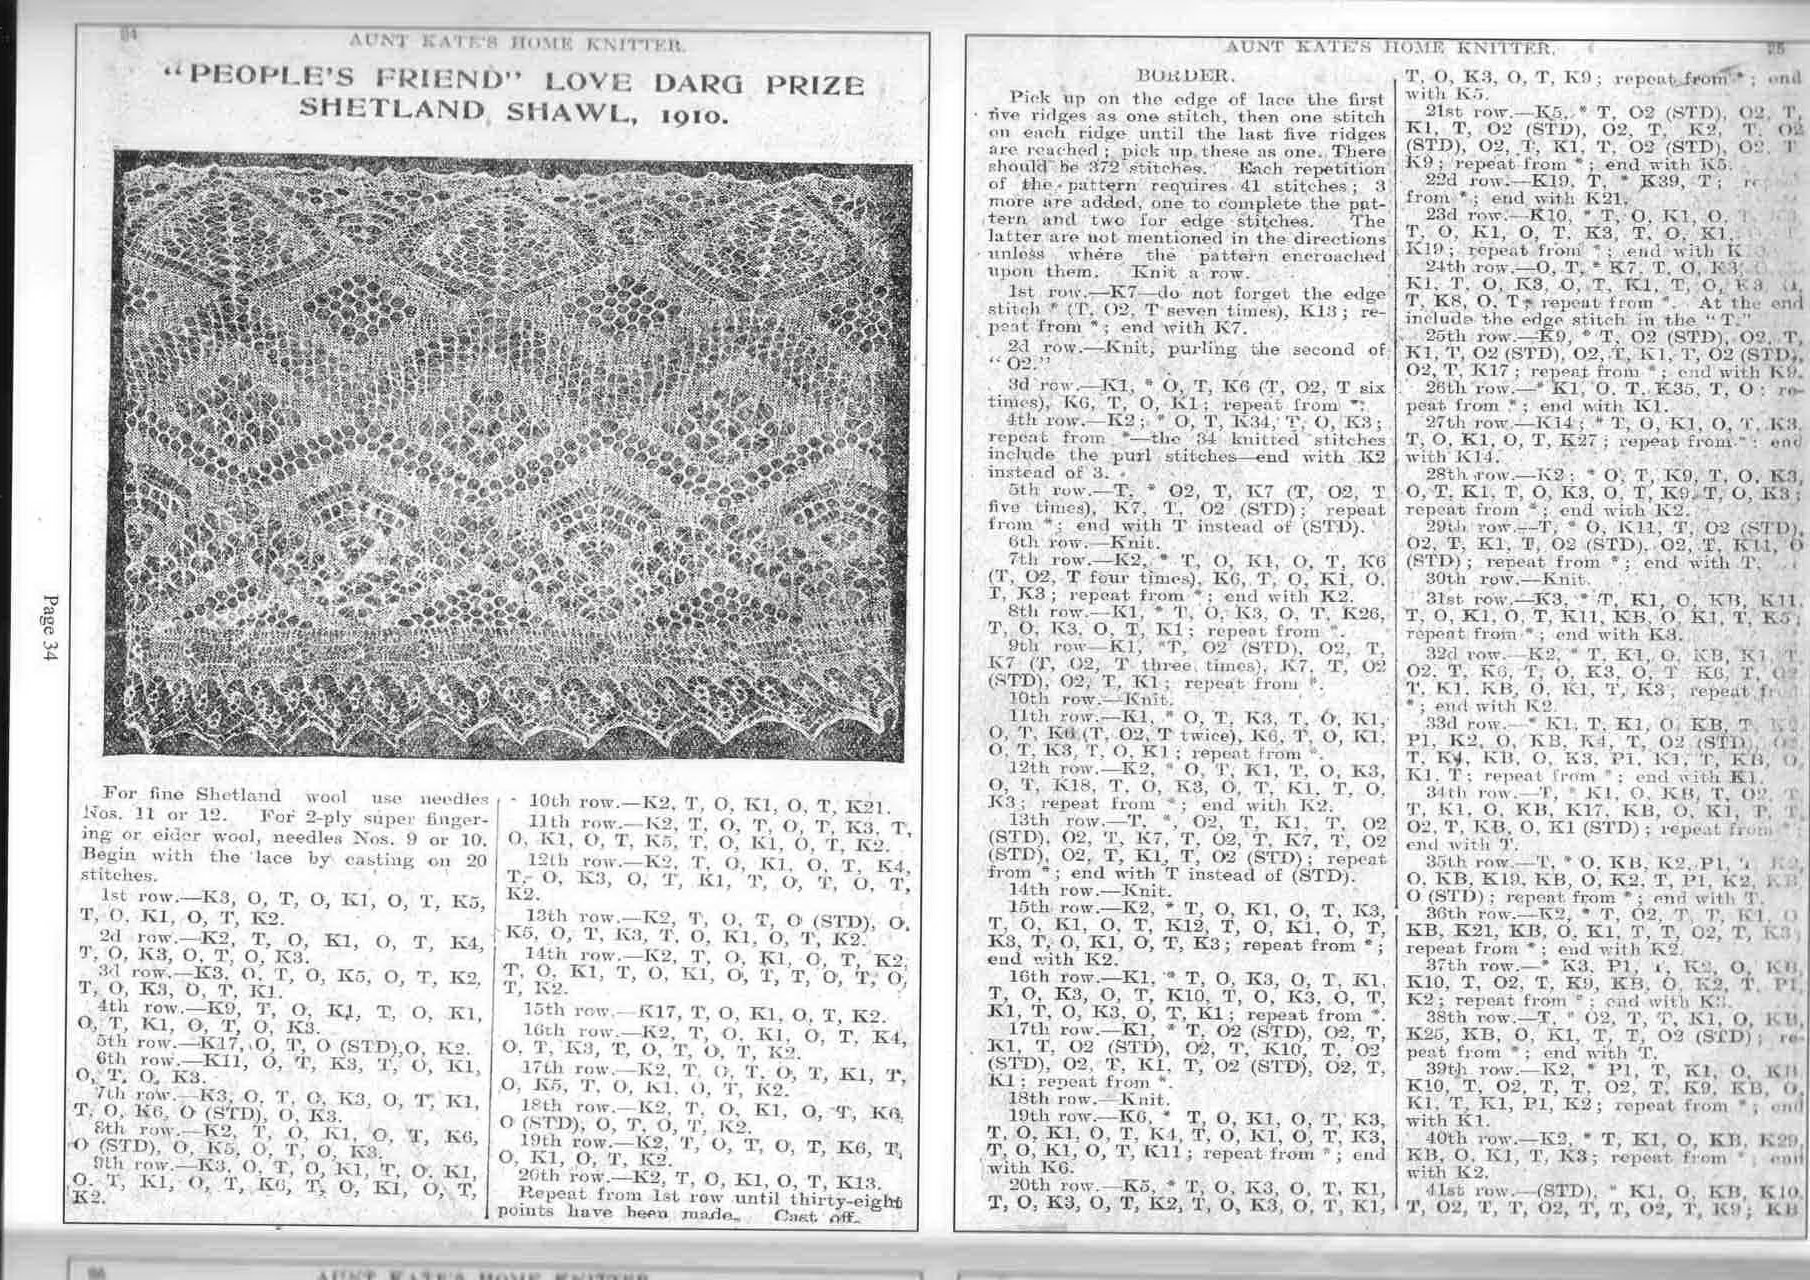 AUNT KATE'S HOME KNITTER.
"PEOPLE'S FRIEND" LOVE DARG PRIZE
SHETLAND SHAWL, 1910.
For fine Shetland wool use needles
Nos. 11 or 12. For 2-ply super finger-
ing or eider wool, needles Nos. 9 or 10.
Begin with the lace by casting on 20
stitches.
1st row.—K3, O, T, O, K1, O, T, K5,
T, O, K1, O, T, K2.
2d row.—K2, T, O, K1, O, T, K4,
T, O, K3, O, T, O, K3.
3d row.—K3, O, T, O, K5, O, T, K2,
T, O, K3, O, T, K1.
4th row.—K9, T, O, K1, T, O, K1,
O, T, K1, O, T, O, K3.
5th row.—K17, O, T, O (STD), O, K2.
6th row.—K11, O, T, K3, T, O, K1,
O, T, O, K3.
7th row.—K3, O, T, O, K3, O, T, K1,
T, O, K6, O (STD), O, K3.
8th row.—K2, T, O, K1, O, T, K6,
O (STD), O, K5, O, T, O, K3.
9th row.—K3, O, T, O, K1, T, O, K1,
O, T, K1, O, T, K6, T, O, K1, O, T,
K2.
10th row.—K2, T, O, K1, O, T, K21.
11th row.—K2, T, O, T, O, T, K3, T,
O, K1, O, T, K5, T, O, K1, O, T, K2.
12th row.—K2, T, O, K1, O, T, K4,
T, O, K3, O, T, K1, T, O, T, O, T,
K2.
13th row.—K2, T, O, T, O (STD), O,
K5, O, T, K3, T, O, K1, O, T, K2.
14th row.—K2, T, O, K1, O, T, K2,
T, O, K1, T, O, K1, O, T, T, O, T, O,
T, K2.
15th row.—K17, T, O, K1, O, T, K2.
16th row.—K2, T, O, K1, O, T, K4,
O, T, K3, T, O, T, O, T, K2.
17th row.—K2, T, O, T, O, T, K1, T,
O, K5, T, O, K1, O, T, K2.
18th row.—K2, T, O, K1, O, T, K6,
O (STD), O, T, O, T, K2.
19th row.—K2, T, O, T, O, T, K6, T,
O, K1, O, T, K2.
20th row.—K2, T, O, K1, O, T, K13.
Repeat from 1st row until thirty-eight
points have been made. Cast off.
Page 34
AUNT KATE'S HOME KNITTER.
BORDER.
Pick up on the edge of lace the first
five ridges as one stitch, then one stitch
on each ridge until the last five ridges
are reached; pick up these as one. There
should be 372 stitches. Each repetition
of the pattern requires 41 stitches; 3
more are added, one to complete the pat-
tern and two for edge stitches. The
latter are not mentioned in the directions
unless where the pattern encroached
upon them. Knit a row.
1st row.—K7—do not forget the edge
stitch * (T, O2, T seven times), K13; re-
peat from *; end with K7.
2d row.—Knit, purling the second of
"O2."
3d row.—K1, * O, T, K6 (T, O2, T six
times), K6, T, O, K1; repeat from *.
4th row.—K2; * O, T, K34, T, O, K3;
repeat from *—the 34 knitted stitches
include the purl stitches—end with K2
instead of 3.
5th row.—T, * O2, T, K7 (T, O2, T
five times), K7, T, O2 (STD); repeat
from *; end with T instead of (STD).
6th row.—Knit.
7th row.—K2, * T, O, K1, O, T, K6
(T, O2, T four times), K6, T, O, K1, O,
T, K3; repeat from *; end with K2.
8th row.—K1, * T, O, K3, O, T, K26,
T, O, K3, O, T, K1; repeat from *.
9th row—K1, *T, O2 (STD), O2, T,
K7 (T, O2, T three times), K7, T, O2
(STD), O2, T, K1; repeat from *.
10th row.—Knit.
11th row.—K1, * O, T, K3, T, O, K1,
O, T, K6 (T, O2, T twice), K6, T, O, K1,
O, T, K3, T, O, K1; repeat from *.
12th row.—K2, * O, T, K1, T, O, K3,
O, T, K18, T, O, K3, O, T, K1, T, O,
K3; repeat from *; end with K2.
13th row.—T, *, O2, T, K1, T, O2
(STD), O2, T, K7, T, O2, T, K7, T, O2
(STD), O2, T, K1, T, O2 (STD); repeat
from *; end with T instead of (STD).
14th row.—Knit.
15th row.—K2, * T, O, K1, O, T, K3,
T, O, K1, O, T, K12, T, O, K1, O, T,
K3, T, O, K1, O, T, K3; repeat from *;
end with K2.
16th row.—K1, * T, O, K3, O, T, K1,
T, O, K3, O, T, K10, T, O, K3, O, T,
K1, T, O, K3, O, T, K1; repeat from *.
17th row.—K1, * T, O2 (STD), O2, T,
K1, T, O2 (STD), O2, T, K10, T, O2
(STD), O2, T, K1, T, O2 (STD), O2, T,
K1; repeat from *.
18th row.—Knit.
19th row.—K6, * T, O, K1, O, T, K3,
T, O, K1, O, T, K4, T, O, K1, O, T, K3,
T, O, K1, O, T, K11; repeat from *; end
with K6.
20th row.—K5, * T, O, K3, O, T, K1,
T, O, K3, O, T, K2, T, O, K3, O, T, K1,
T, O, K3, O, T, K9; repeat from *; end
with K5.
21st row.—K5, * T, O2 (STD), O2, T,
K1, T, O2 (STD), O2, T, K2, T, O2
(STD), O2, T, K1, T, O2 (STD), O2, T
K9; repeat from *; end with K5.
22d row.—K19, T, * K39, T;
from *; end with K21.
23d row.—K10, * T, O, K1, O,
T, O, K1, O, T, K3, T, O, K1,
K19; repeat from *; end with K
24th row.—O, T, * K7, T, O, K3,
K1, T, O, K3, O, T, K1, T, O, K3, O,
T, K8, O, T; repeat from *. At the end
include the edge stitch in the "T."
25th row.—K9, * T, O2 (STD), O2, T,
K1, T, O2 (STD), O2, T, K1, T, O2 (STD),
O2, T, K17; repeat from *; end with K9.
26th row.—* K1, O, T, K35, T, O; re-
peat from *; end with K1.
27th row.—K14; * T, O, K1, O, T, K3,
T, O, K1, O, T, K27; repeat from *; end
with K14.
28th row.—K2; * O, T, K9, T, O, K3,
O, T, K1, T, O, K3, O, T, K9, T, O, K3;
repeat from *; end with K2.
29th row.—T, * O, K11, T, O2 (STD),
O2, T, K1, T, O2 (STD), O2, T, K11, O
(STD); repeat from *; end with T.
30th row.—Knit.
31st row.—K3, * T, K1, O, KB, K11,
T, O, K1, O, T, K11, KB, O, K1, T, K5;
repeat from *; end with K3.
32d row.—K2, * T, K1, O, KB, K1, T,
O2, T, K6, T, O, K3, O, T, K6, T, O2,
T, K1, KB, O, K1, T, K3; repeat from
*; end with K2.
33d row.—* K1, T, K1, O, KB, T, K2,
P1, K2, O, KB, K4, T, O2 (STD), O2,
T, K4, KB, O, K3, P1, K1, T, KB, O,
K1, T; repeat from *; end with K1.
34th row.—T, * K1, O, KB, T, O2, T,
T, K1, O, KB, K17, KB, O, K1, T, T,
O2, T, KB, O, K1 (STD); repeat from *;
end with T.
35th row.—T, * O, KB, K2, P1, T, K2,
O, KB, K19, KB, O, K2, T, P1, K2, KB,
O (STD); repeat from *; end with T.
36th row.—K2, * T, O2, T, T, K1, O,
KB, K21, KB, O, K1, T, T, O2, T, K3;
repeat from *; end with K2.
37th row.—* K3, P1, T, K2, O, KB,
K10, T, O2, T, K9, KB, O, K2, T, P1,
K2; repeat from *; end with K3.
38th row.—T, * O2, T, T, K1, O, KB,
K25, KB, O, K1, T, T, O2 (STD); re-
peat from *; end with T.
39th row.—K2, * P1, T, K1, O, KB,
K10, T, O2, T, T, O2, T, K9, KB, O,
K1, T, K1, P1, K2; repeat from *; end
with K1.
40th row.—K2, * T, K1, O, KB, K29,
KB, O, K1, T, K3; repeat from *; end
with K2.
41st row.—(STD), * K1, O, KB, K10,
T, O2, T, T, O2, T, T, O2, T, K9; KB
AUNT KATE'S HOME KNITTER.